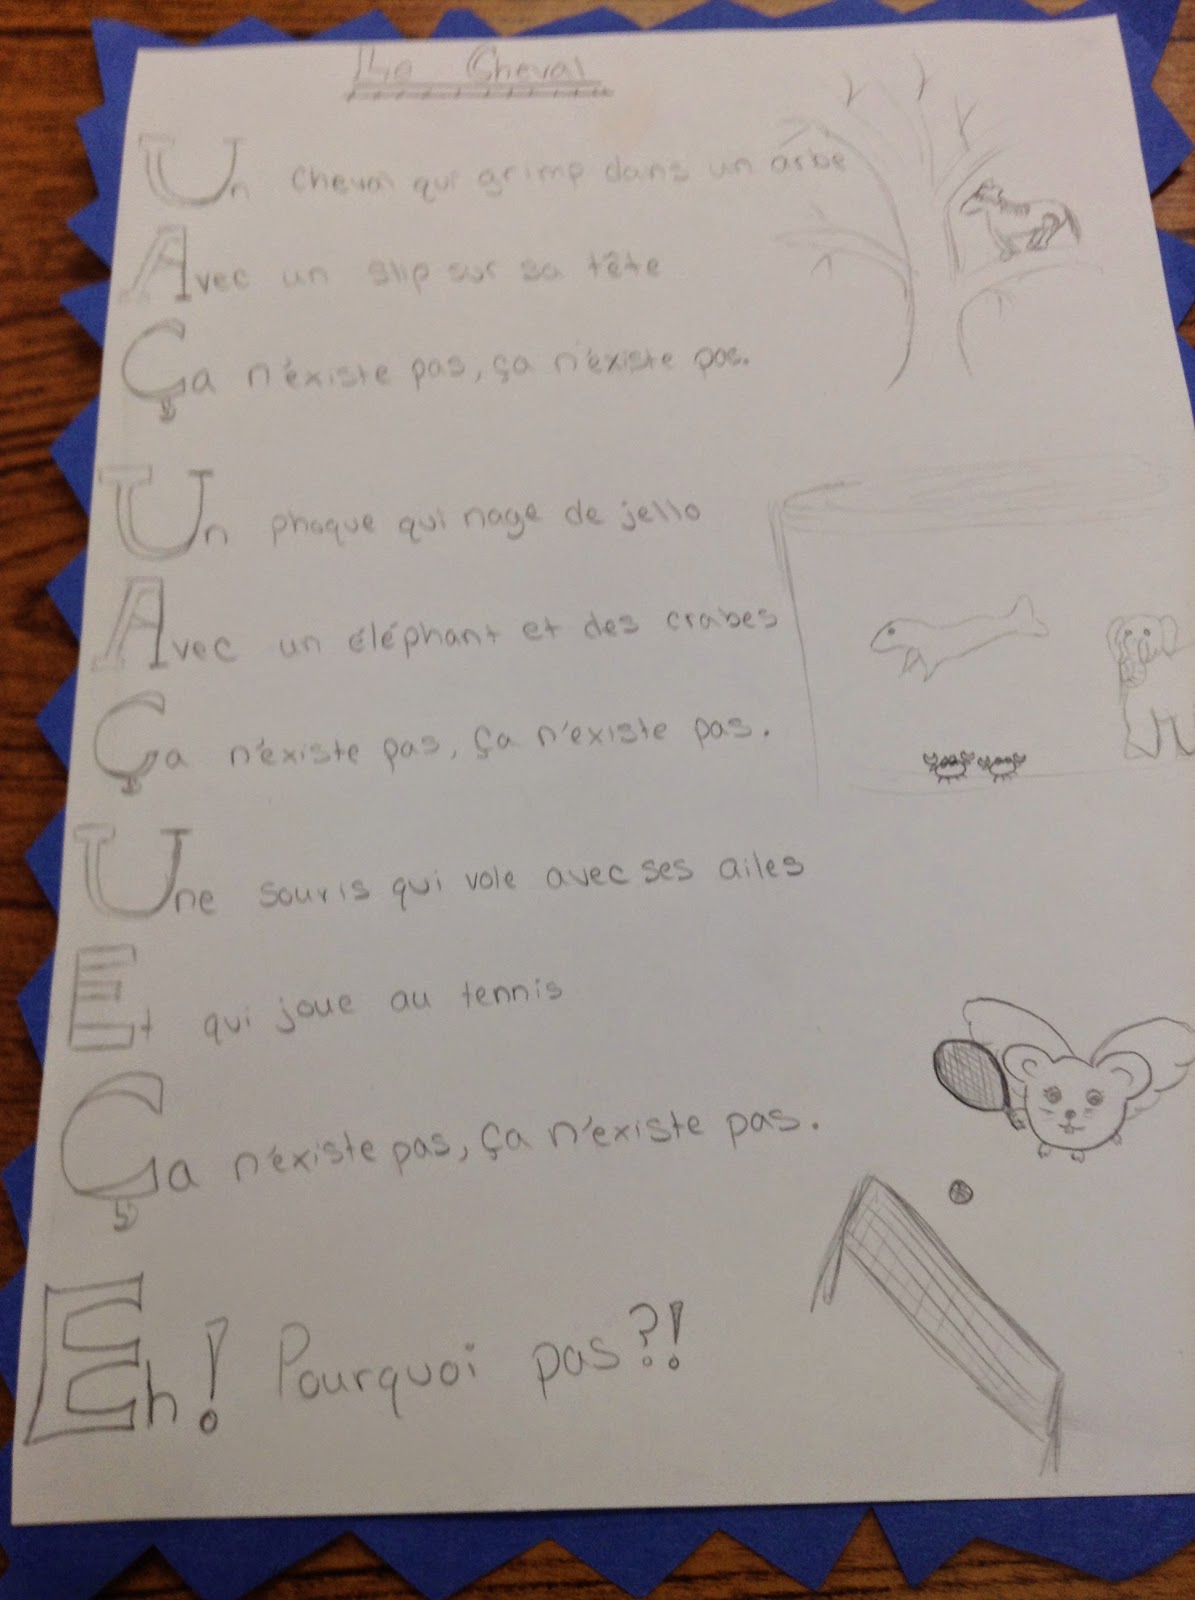 Le Cheval
Un cheval qui grimp dans un arbe
Avec un slip sur sa tête
Ça n'éxiste pas, ça n'éxiste pas.
Un phoque qui nage de jello
Avec un éléphant et des crabes
Ça n'éxiste pas, ça n'existe pas.
Une souris qui vole avec ses ailes
Et qui joue au tennis
Ça n'éxiste pas, ça n'existe pas.
Eh! Pourquoi pas?!